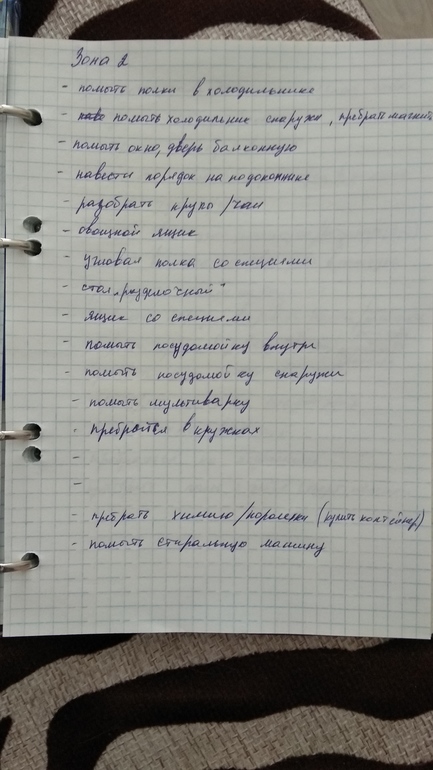 Зона 2
- помыть полки в холодильнике
- помыть холодильник снаружи, пребрать магнит
- помыть окно, дверь балконную
- навести порядок на подоконнике
- разобрать крупы/чаи
- овощной ящик
- угловая полка со специями
- стол „разделочный"
- ящик со специями
- помыть посудомойку внутри
- помыть посудомойку снаружи
- помыть мультиварку
- пребраться в кружках
-
-
- пребрать химию/порошки (купить контейнер)
- помыть стиральную машину